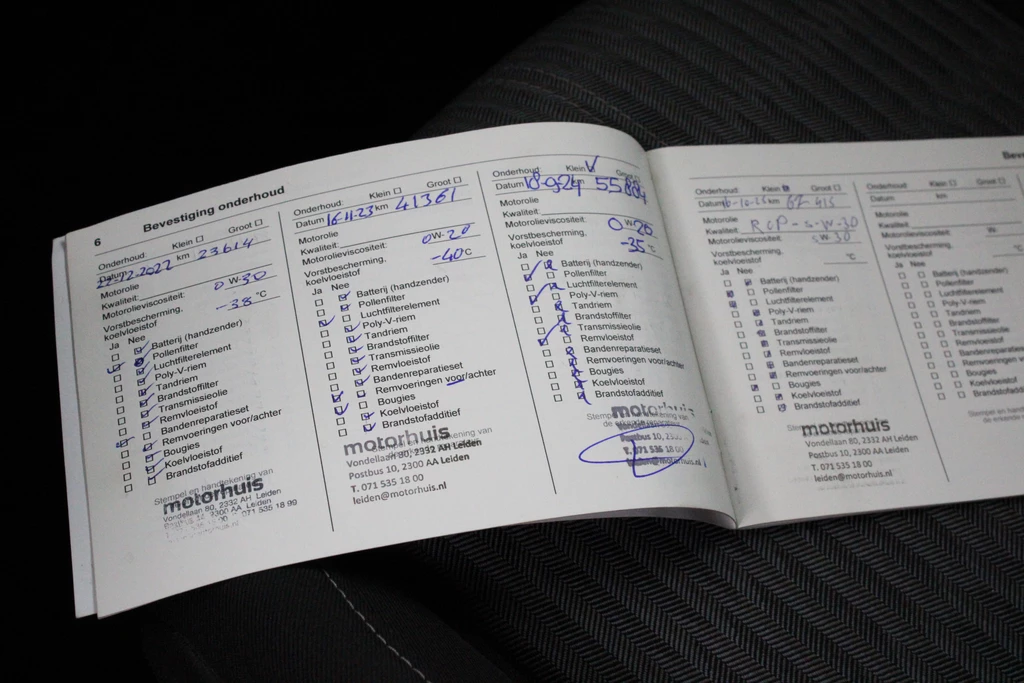 6 Bevestiging onderhoud
Klein Groot
Onderhoud
Datum 22-12-2022 km 23614
Motorolie
Kwaliteit:
Motorolieviscositeit: 0 W-30
Vorstbescherming,
koelvloeistof -38 °C
Ja Nee
Batterij (handzender)
Pollenfilter
Luchtfilterelement
Poly-V-riem
Tandriem
Brandstoffilter
Transmissieolie
Remvloeistof
Bandenreparatieset
Remvoeringen voor/achter
Bougies
Koelvloeistof
Brandstofadditief
Stempel en handtekening van
motorhuis
Vondellaan 80, 2332 AH Leiden
Postbus 10, 2300 AA Leiden
071 535 18 99
Onderhoud: Klein Groot
Datum 16-11-23 km 41361
Motorolie
Kwaliteit:
Motorolieviscositeit: 0W-20
Vorstbescherming,
koelvloeistof -40°C
Ja Nee
Batterij (handzender)
Pollenfilter
Luchtfilterelement
Poly-V-riem
Tandriem
Brandstoffilter
Transmissieolie
Remvloeistof
Bandenreparatieset
Remvoeringen voor/achter
Bougies
Koelvloeistof
Brandstofadditief
Stempel en handtekening van
motorhuis
Vondellaan 80, 2332 AH Leiden
Postbus 10, 2300 AA Leiden
T. 071 535 18 00
leiden@motorhuis.nl
Onderhoud: Klein Groot
Datum 18-9-24 km
Motorolie
Kwaliteit:
Motorolieviscositeit: 0 W-20
Vorstbescherming,
koelvloeistof -35 °C
Ja Nee
Batterij (handzender)
Pollenfilter
Luchtfilterelement
Poly-V-riem
Tandriem
Brandstoffilter
Transmissieolie
Remvloeistof
Bandenreparatieset
Remvoeringen voor/achter
Bougies
Koelvloeistof
Brandstofadditief
Stempel en handtekening van
motorhuis
Postbus 10,
T. 071 535 18 00
leiden@motorhuis.nl
Onderhoud: Klein Groot
Datum km
Motorolie
Kwaliteit:
Motorolieviscositeit: W 30
Vorstbescherming,
koelvloeistof °C
Ja Nee
Batterij (handzender)
Pollenfilter
Luchtfilterelement
Poly-V-riem
Tandriem
Brandstoffilter
Transmissieolie
Remvloeistof
Bandenreparatieset
Remvoeringen voor/achter
Bougies
Koelvloeistof
Brandstofadditief
motorhuis
Vondellaan 80, 2332 AH Leiden
Postbus 10, 2300 AA Leiden
T. 071 535 18 00
leiden@motorhuis.nl
Onderhoud: Klein Groot
Datum km
Motorolie
Kwaliteit:
Motorolieviscositeit: W-
Vorstbescherming,
koelvloeistof °C
Ja Nee
Batterij (handzender)
Pollenfilter
Luchtfilterelement
Poly-V-riem
Tandriem
Brandstoffilter
Transmissieolie
Remvloeistof
Bandenreparatieset
Remvoeringen
Bougies
Koelvloeistof
Brandstofadditief
Stempel en
de erkende